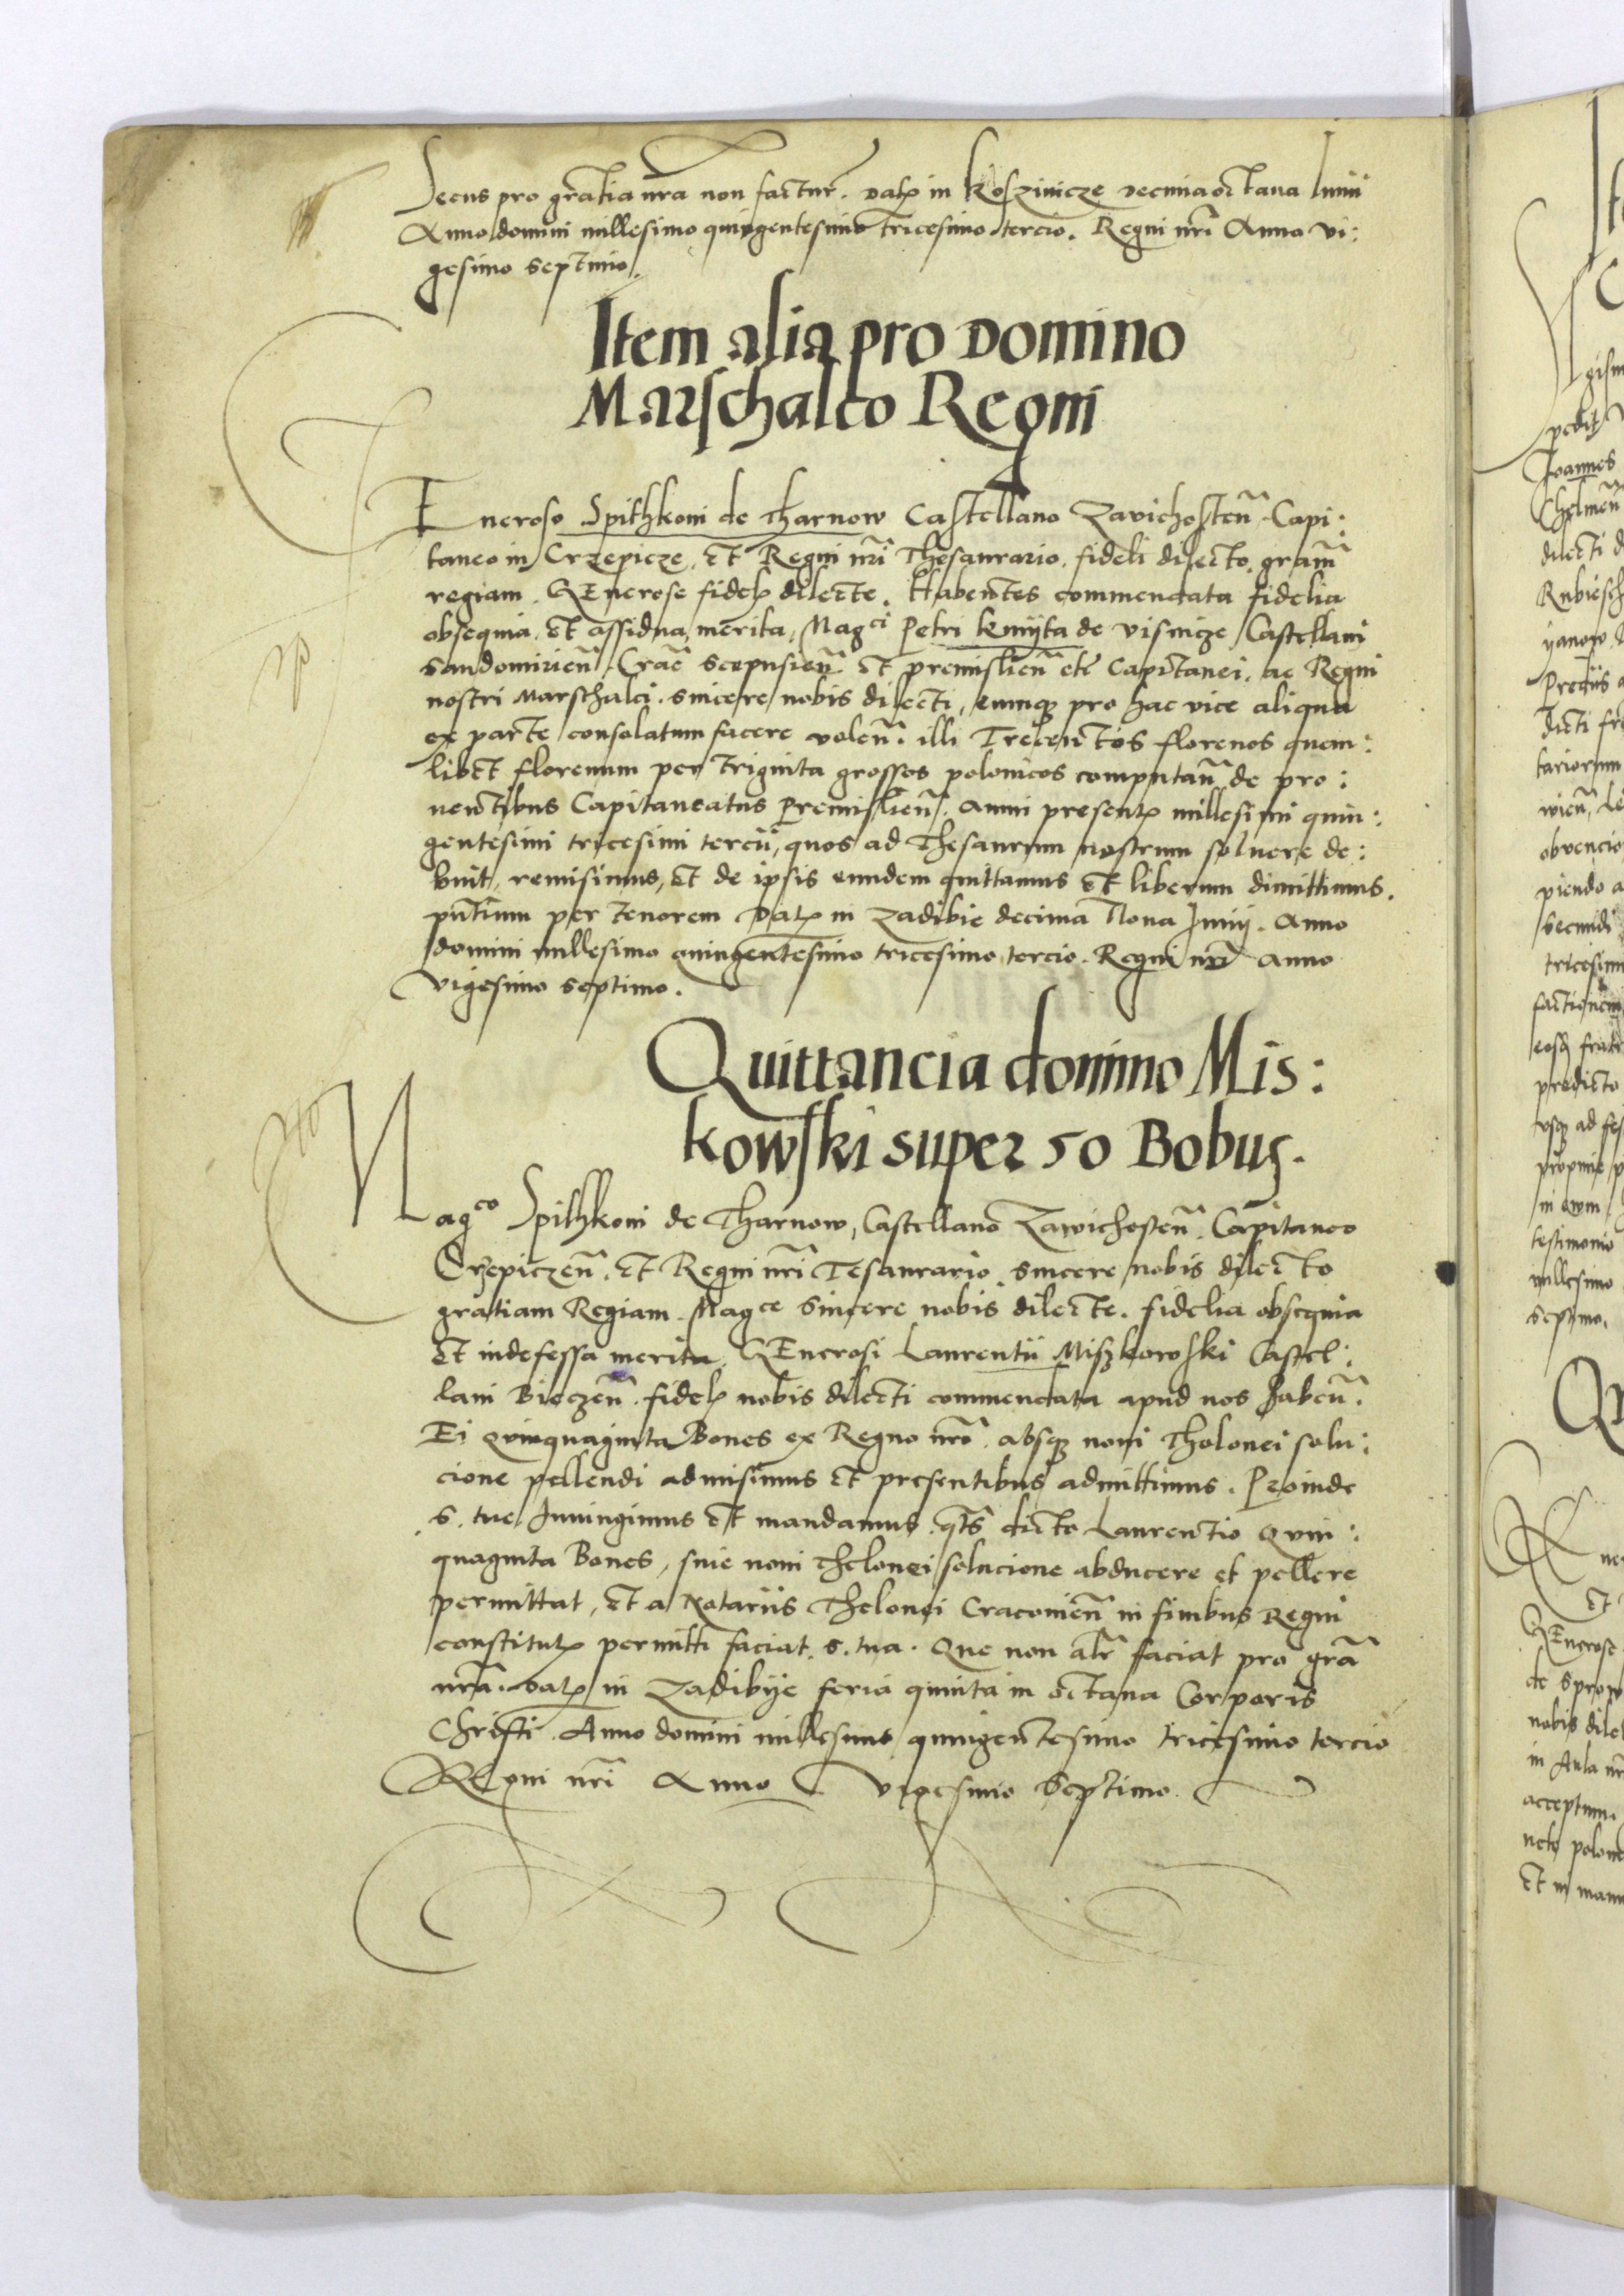 Secus pro gratia nra non factur. Datum in Koszinicze decimaoctaua Junii
Anno domini millesimo quingentesimo tricesimo tercio. Regni nri Anno vi:
gesimo septimo.
Item alia pro Domino
Marschalco Regni
Eneroso Spithkoni de Tharnow Castellano Zavichosten. Capi:
taneo in Crzepicze, et Regni nri Thesaurario. fideli dilecto. gram
regiam. GEnerose fidelis dilecte. Habentes commendata fidelia
obsequia et assidua merita, Magci Petri Kmyta de visnicze Castellani
Sandomirien. Crac Scepusien et premislien etc Capitanei. ac Regni
nostri Marschalci. sincere nobis dilecti, eumque pro hac vice aliqua
ex parte consolatum facere volen. illi Trecentos florenos quem:
libet florenum per triginta grossos polonicos computan de pro:
uentibus Capitaneatus Premislien. anni presentis millesimi quin:
gentesimi tricesimi tercii, quos ad Thesaurum nostrum soluere de:
buit, remisimus, et de ipsis eundem quittamus et liberum dimittimus.
pntium per tenorem Datum in Zadibie decima Nona Junij. Anno
domini millesimo quingentesimo tricesimo tercio. Regni nri anno
vigesimo septimo.
Quittancia domino Mis:
kowski super 50 Bobus.
Magco Spithkoni de Tharnow, Castellano Zawichosten. Capitaneo
Crzepiczen. et Regni nri Tesaurario. sincere nobis dilecto
gratiam Regiam. Magce Sincere nobis dilecte. fidelia obsequia
et indefessa merita. GEnerosi Laurentii Miszkowski Castel:
lani Bieczen. fidelis nobis dilecti commendata apud nos habeñ.
Ei quinquaginta Boues ex Regno nro. absque noui Tholonei solu:
cione pellendi admisimus et presentibus admittimus. Proinde
S. tue Iniungimus et mandamus. qts dicto Laurentio Quin:
quaginta Boues, sine noui Thelonei solucione abducere et pellere
permittat, et a Notariis Thelonei Cracouien in finibus Regni
constitutis permitti faciat. S. tua. Que non alr faciat pro gra
nra. Datum in Zadibije feria quinta in octaua Corporis
Christi. Anno domini millesimo quingentesimo tricesimo tercio
REgni nri Anno vigesimo Septimo.